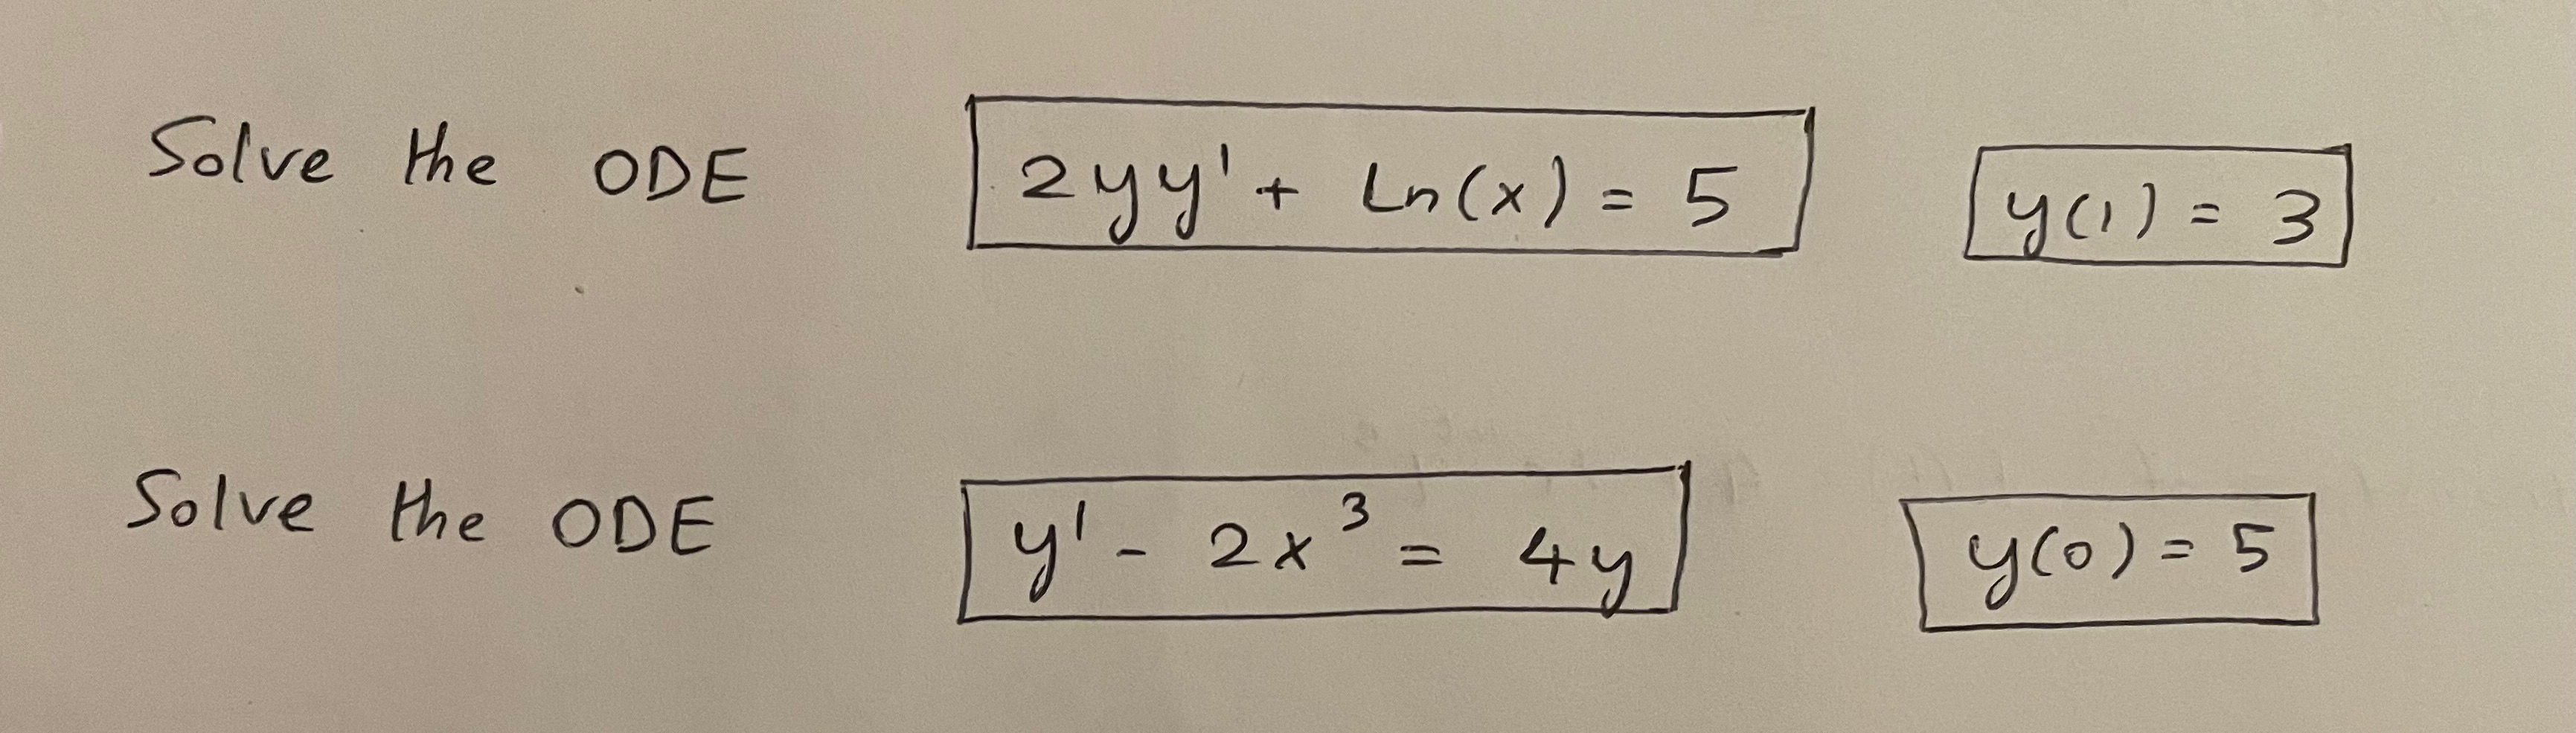 Solve the ODE 2yy' + Ln(x) = 5 y(1) = 3
Solve the ODE y' - 2x³ = 4y y(0) = 5